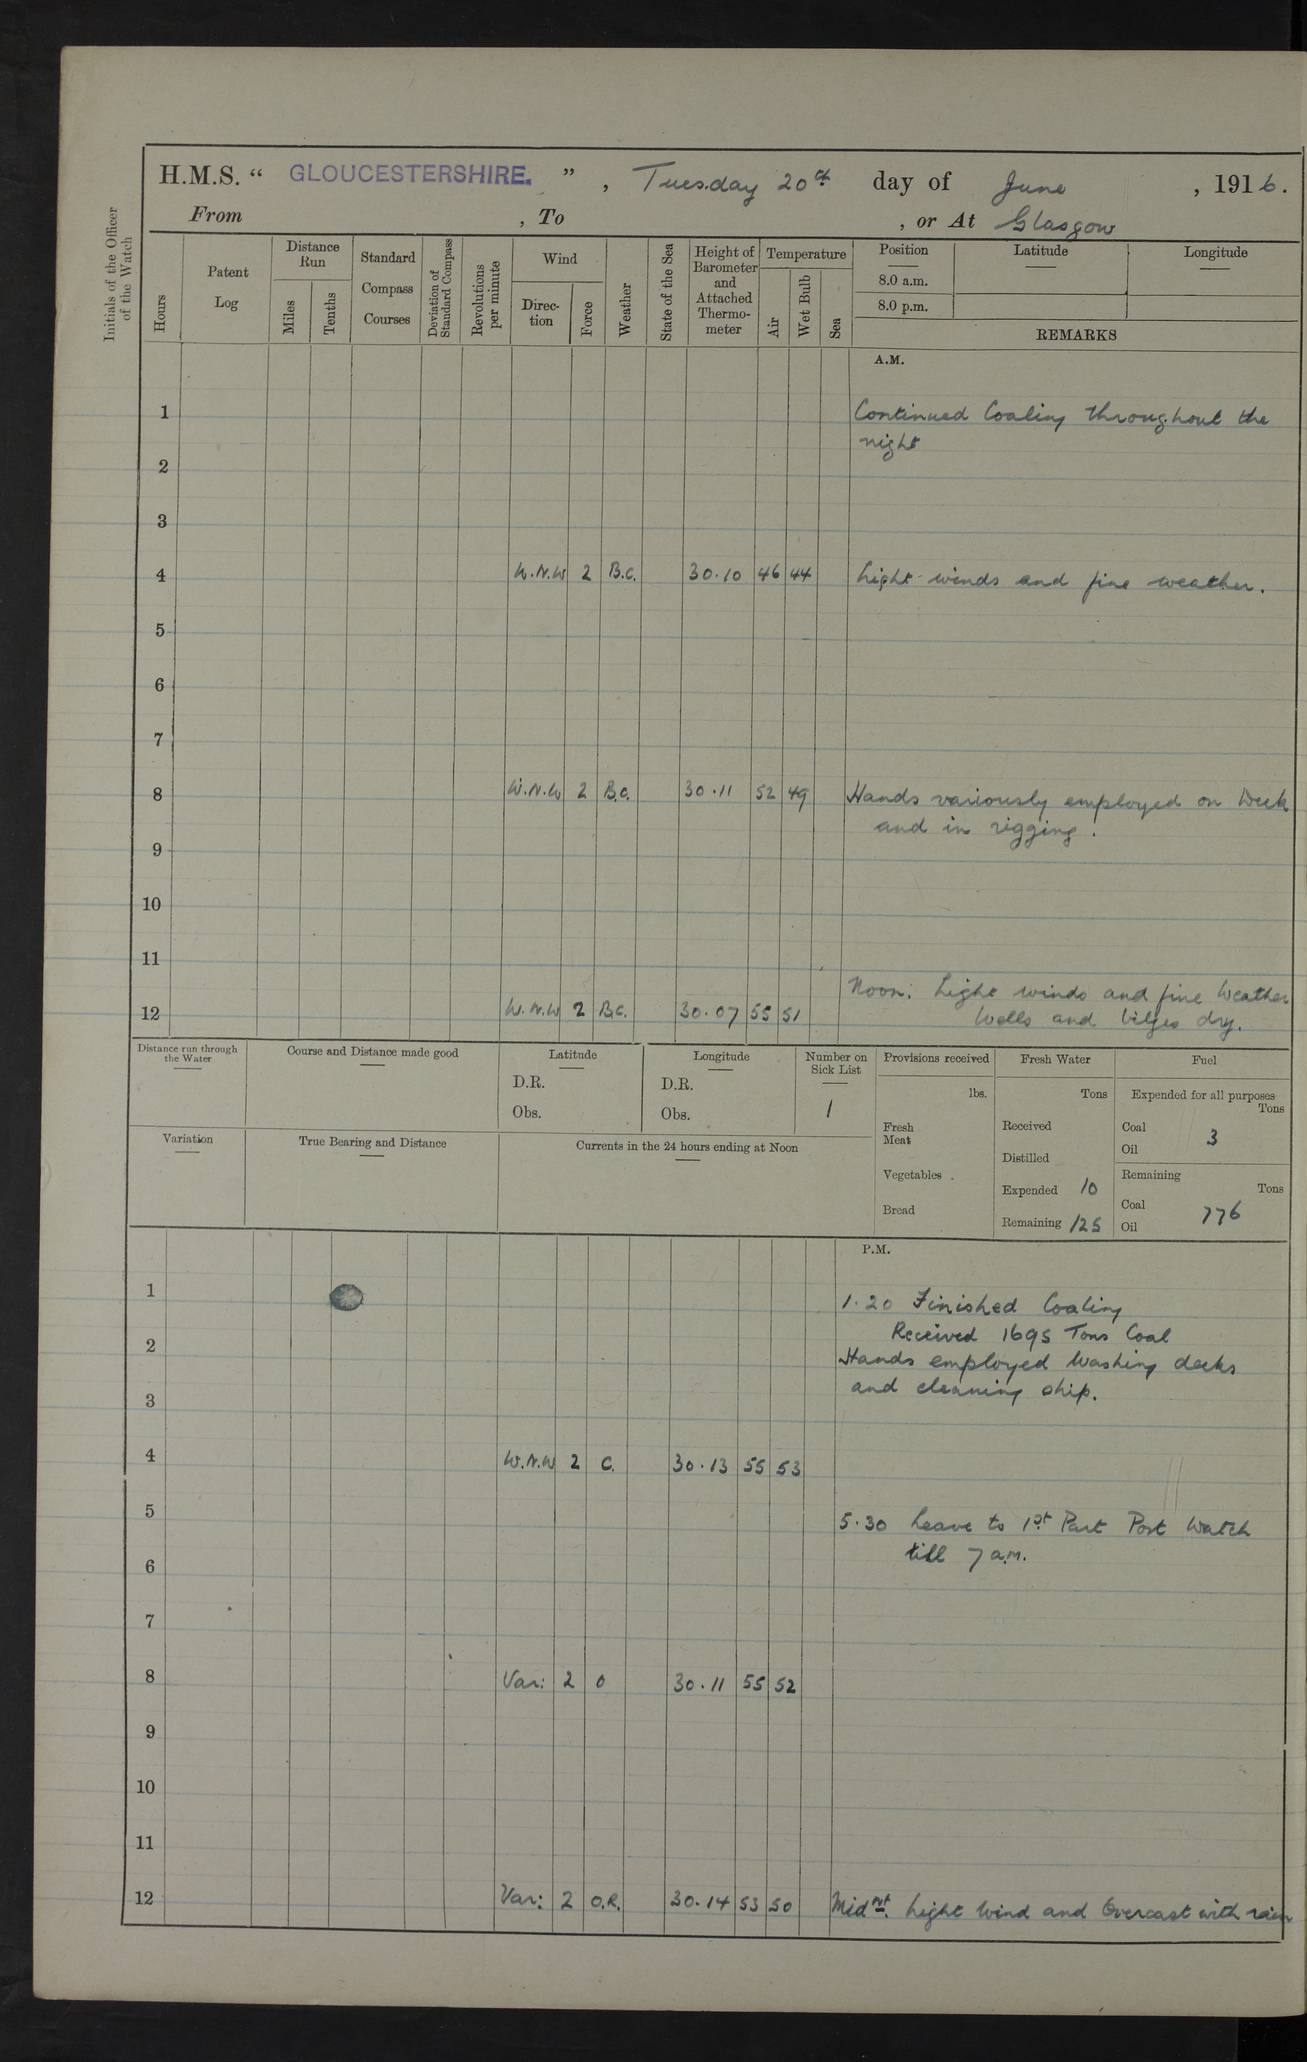 H.M.S. “ GLOUCESTERSHIRE. ” , Tuesday 20th day of June , 1916.
From , To , or At Glasgow
Initials of the Officer of the Watch
Hours
Patent Log
Distance Run
Miles
Tenths
Standard Compass Courses
Deviation of Standard Compass
Revolutions per minute
Wind
Direc-tion
Force
Weather
State of the Sea
Height of Barometer and Attached Thermo-meter
Temperature
Air
Wet Bulb
Sea
Position Latitude Longitude
8.0 a.m.
8.0 p.m.
REMARKS
A.M.
1 Continued Coaling throughout the
night
2
3
4 W.N.W 2 B.C. 30.10 46 44 Light winds and fine weather.
5
6
7
8 W.N.W 2 B.C. 30.11 52 49 Hands variously employed on Deck
and in rigging.
9
10
11
Noon: Light winds and fine Weather
12 W.N.W 2 B.C. 30.07 55 51 Wells and bilges dry.
Distance run through the Water
Course and Distance made good
Latitude
D.R.
Obs.
Longitude
D.R.
Obs.
Number on Sick List
1
Provisions received
lbs.
Fresh Meat
Vegetables .
Bread
Fresh Water
Tons
Received
Distilled
Expended 10
Remaining 125
Fuel
Expended for all purposes
Tons
Coal 3
Oil
Remaining
Tons
Coal 776
Oil
Variation
True Bearing and Distance
Currents in the 24 hours ending at Noon
P.M.
1 1.20 Finished Coaling
Received 1695 Tons Coal
2 Hands employed Washing decks
and cleaning ship.
3
4 W.N.W 2 C. 30.13 55 53
5 5.30 Leave to 1st Part Port Watch
till 7 a.m.
6
7
8 Var: 2 O 30.11 55 52
9
10
11
12 Var: 2 O.R. 30.14 53 50 Midnt. Light Wind and Overcast with rain